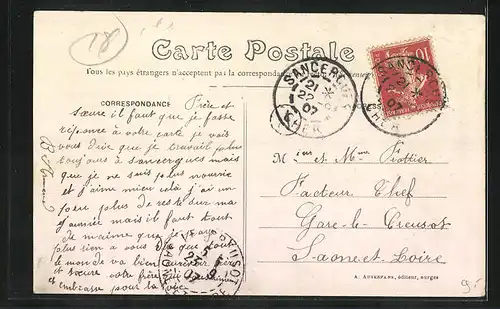 18
Carte Postale
Tous les pays étrangers n'acceptent pas la correspondance
CORRESPONDANCE
Frère et
sœure il faut que je fasse
réponce à votre carte je vais
vous dire que je travail plus
toujours à sancerques mais
que je ne suis plus nourrie
et j'aime mieu cela j'ai un
peu plus de reste dur ma
journée mais il faut tout
de maime que je paye
plus rien a vous dire que tout
le monde va bien
et sœure votre frère qui vous
embrasse pour la vie
SANCERGUES
21
22
07
CHER
10
CHER
Mr et Mme Rottier
Facteur Chef
Gare-le-Creusot
Saone-et-Loire
A. AUXENFANS, éditeur,